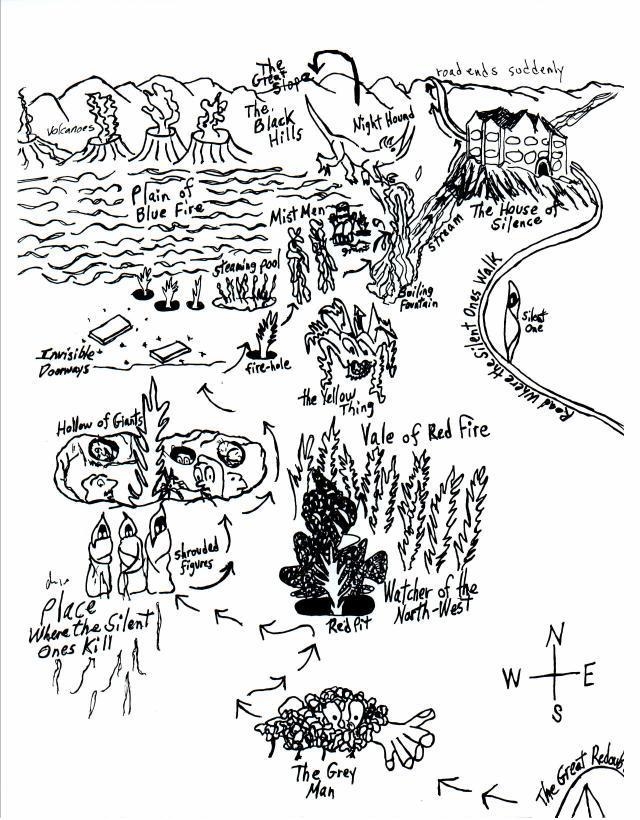 The
Great
Slope
road ends suddenly
Volcanoes
The
Black
Hills
Night Hound
Plain of
Blue Fire
Mist Men
stream
The House of
Silence
steaming pool
Boiling
Fountain
Silent
One
Road Where the Silent Ones Walk
Invisible
Doorways
fire-hole
the Yellow
Thing
Hollow of Giants
Vale of Red Fire
shrouded
figures
Place
Where the Silent
Ones Kill
Watcher of the
North-West
Red Pit
N
W E
S
The Grey
Man
The Great